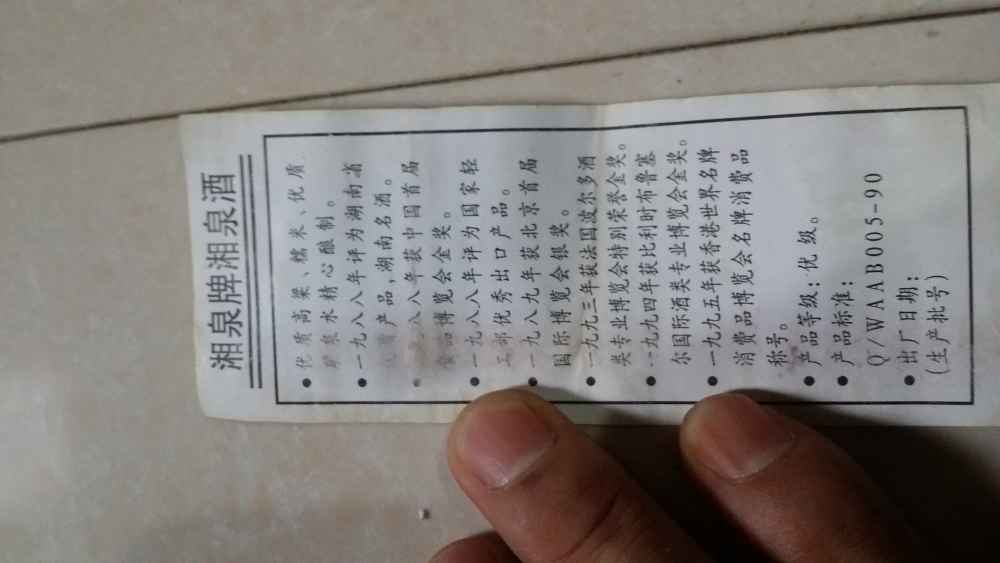 湘泉牌湘泉酒
●优质高粱、糯米、优质
矿泉水精心酿制。
●一九八八年评为湖南省
优质产品,湖南名酒。
●一九八八年获中国首届
食品博览会金奖。
●一九八八年评为国家轻
工部优秀出口产品。
●一九八九年获北京首届
国际博览会银奖。
●一九九三年获法国波尔多酒
类专业博览会特别荣誉金奖。
●一九九四年获比利时布鲁塞
尔国际酒类专业博览会金奖。
●一九九五年获香港世界名牌
消费品博览会名牌消费品
称号。
●产品等级:优级。
●产品标准:
Q/WAAB005-90
●出厂日期:
(生产批号)